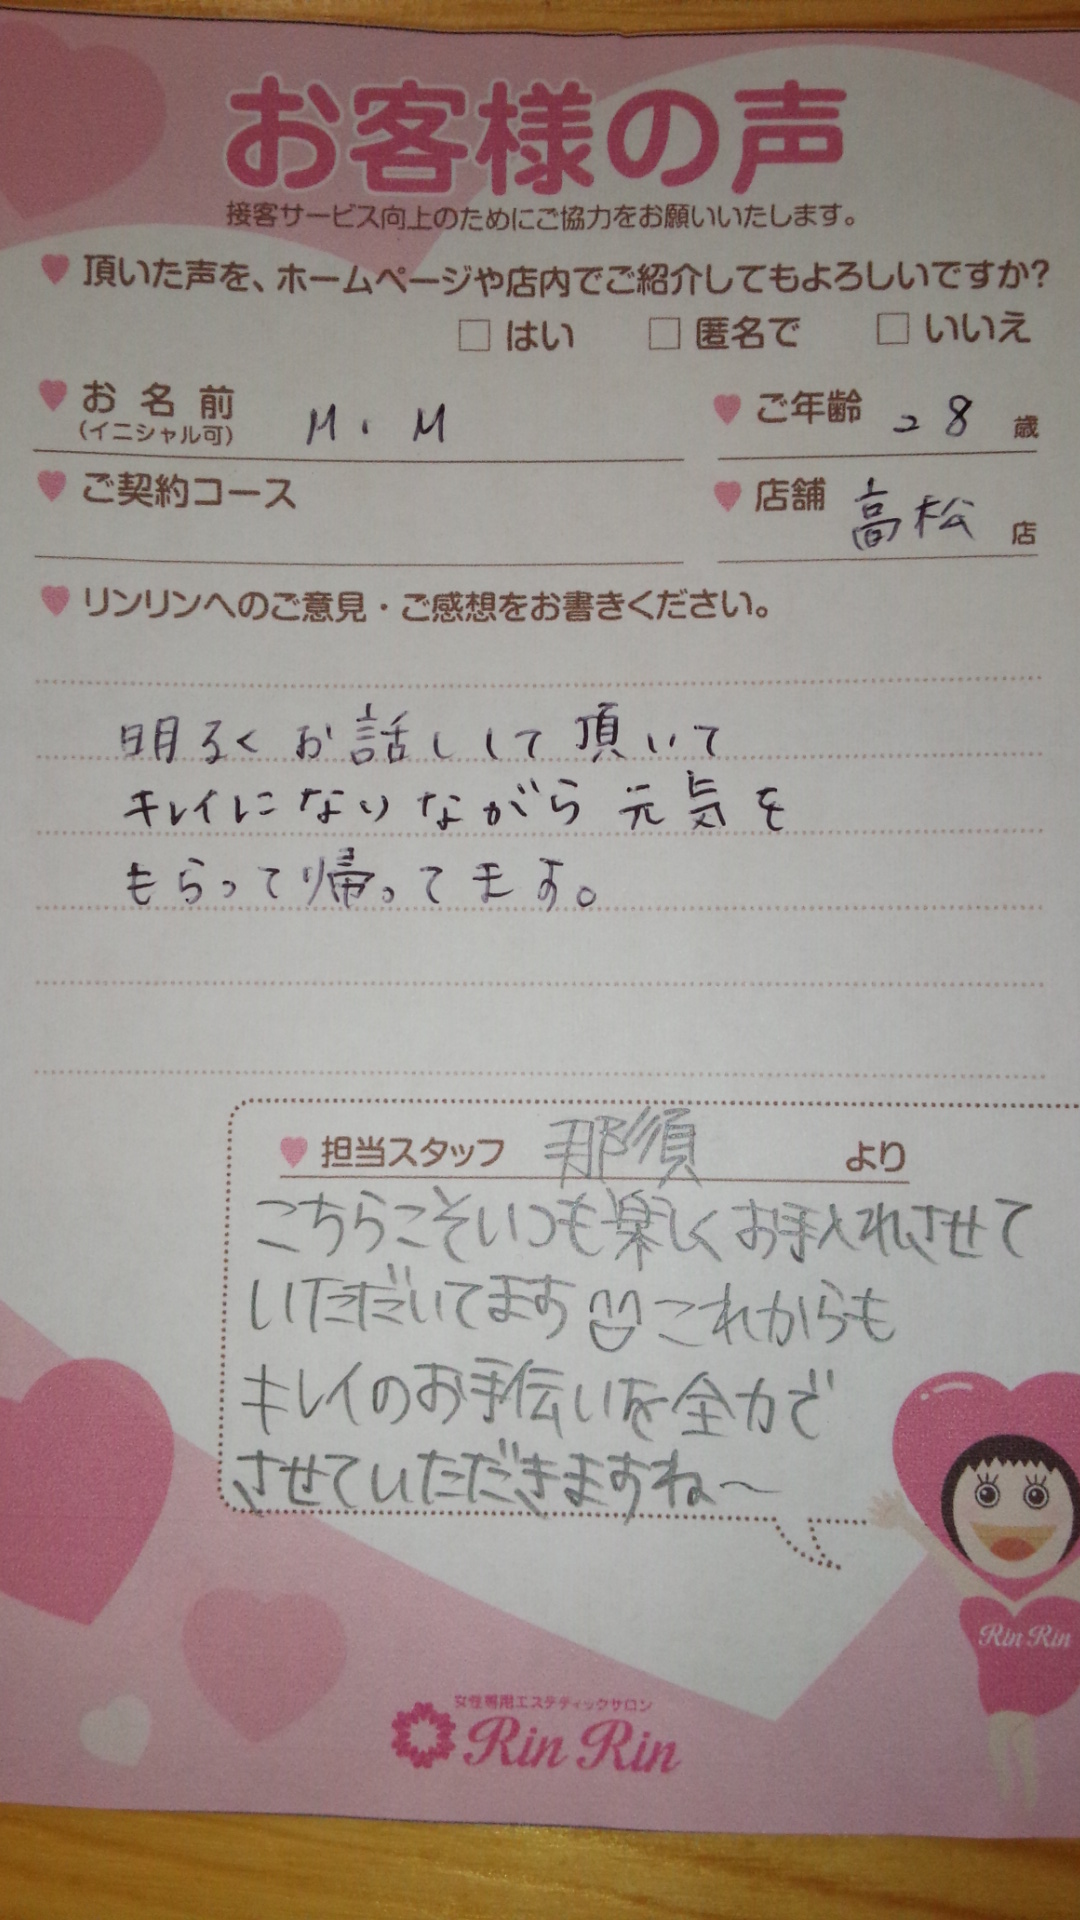 お客様の声
接客サービス向上のためにご協力をお願いいたします。
頂いた声を、ホームページや店内でご紹介してもよろしいですか?
はい 匿名で いいえ
お名前 M.M ご年齢 28 歳
(イニシャル可)
ご契約コース 店舗 高松 店
リンリンへのご意見・ご感想をお書きください。
明るくお話しして頂いて
キレイになりながら元気を
もらって帰ってます。
担当スタッフ 那須 より
こちらこそいつも楽しくお手入れさせて
いただいてます これからも
キレイのお手伝いを全力で
させていただきますね〜
Rin Rin
女性専用エステティックサロン
Rin Rin